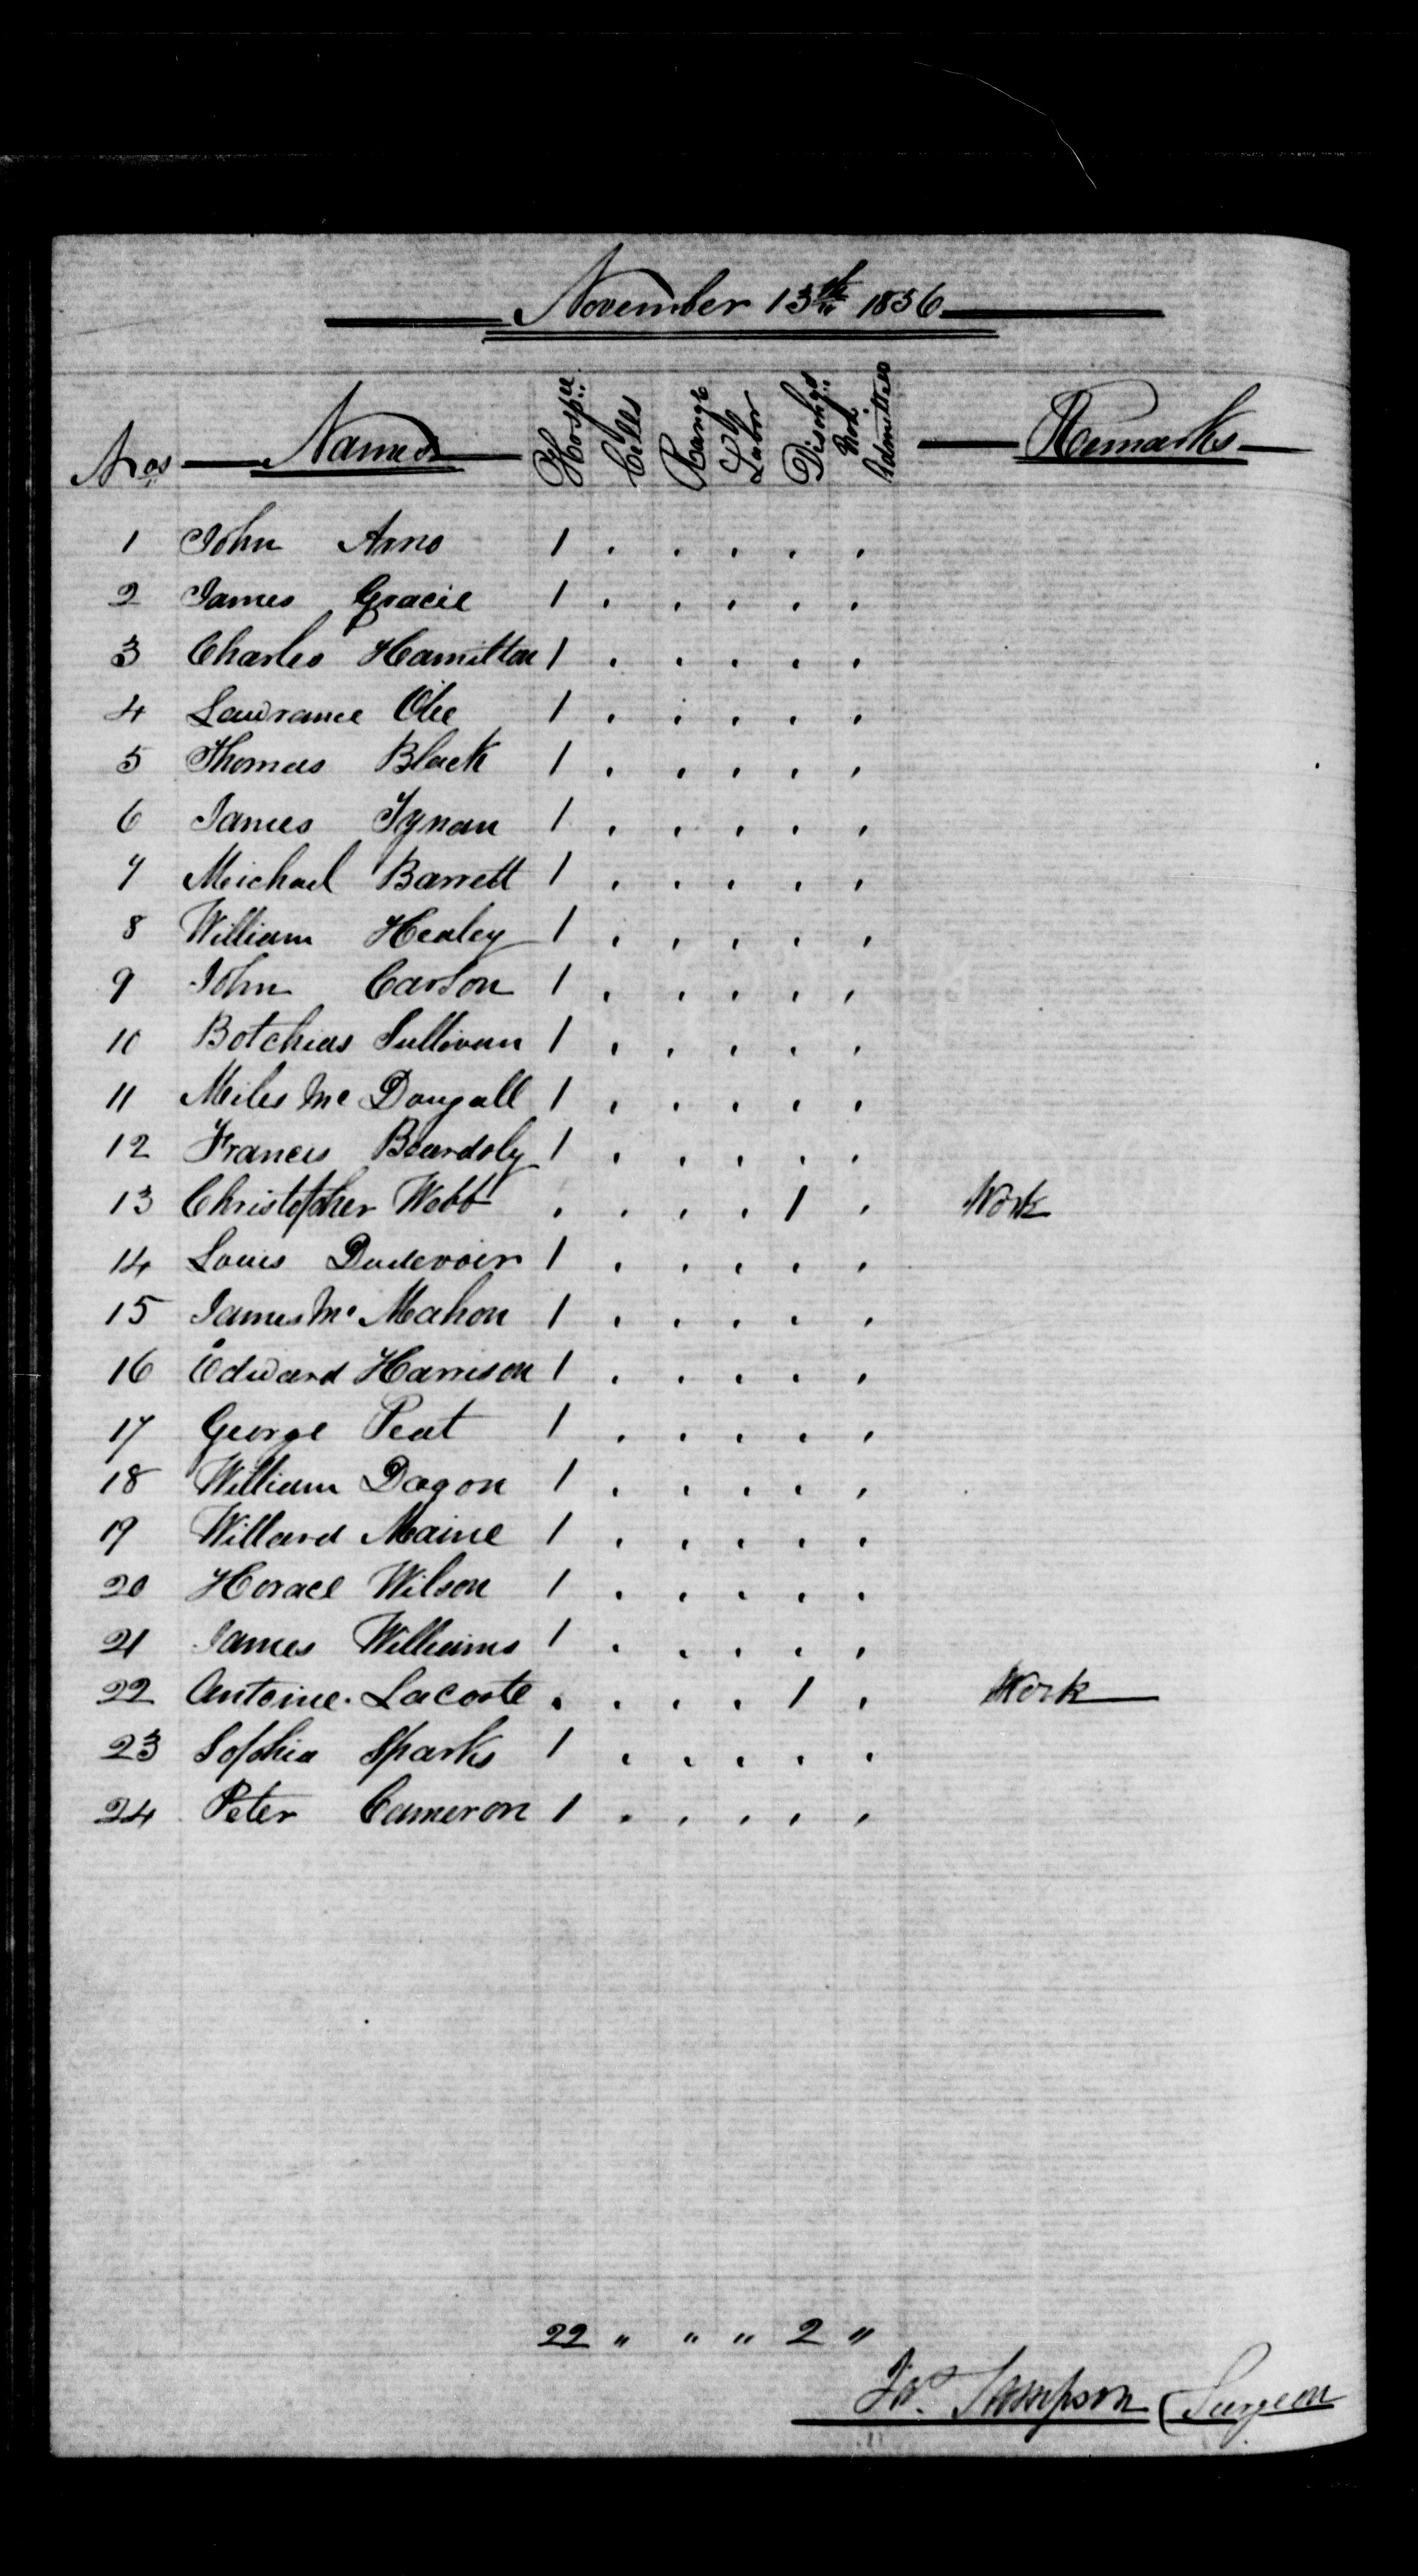 November 13th 1856
Nos Names Hospl. Cells Range Lt Labor Dischgd Not Admitted Remarks
1 John Arno 1 . . . . .
2 James Gracie 1 . . . . .
3 Charles Hamilton 1 . . . . .
4 Lawrance 1 . . . . .
5 Thomas Black 1 . . . . .
6 James Tynan 1 . . . . .
7 Meichael Barrett 1 . . . . .
8 William Healey 1 . . . . .
9 John Carson 1 . . . . .
10 Botchias Sullivan 1 . . . . .
11 Meiles Mc Dougall 1 . . . . .
12 Francis Beardsly 1 . . . . .
13 Christopher Webb . . . . 1 . Work
14 Louis Dudevoir 1 . . . . .
15 James Mc Mahon 1 . . . . .
16 Edward Harrison 1 . . . . .
17 George Peat 1 . . . . .
18 William Dagon 1 . . . . .
19 Willard Maine 1 . . . . .
20 Horace Wilson 1 . . . . .
21 James Williams 1 . . . . .
22 Antoine Lacoste . . . . 1 . Work
23 Sophia Sparks 1 . . . . .
24 Peter Cameron 1 . . . . .
22 " " " 2 "
Jas. Sampson (Surgeon